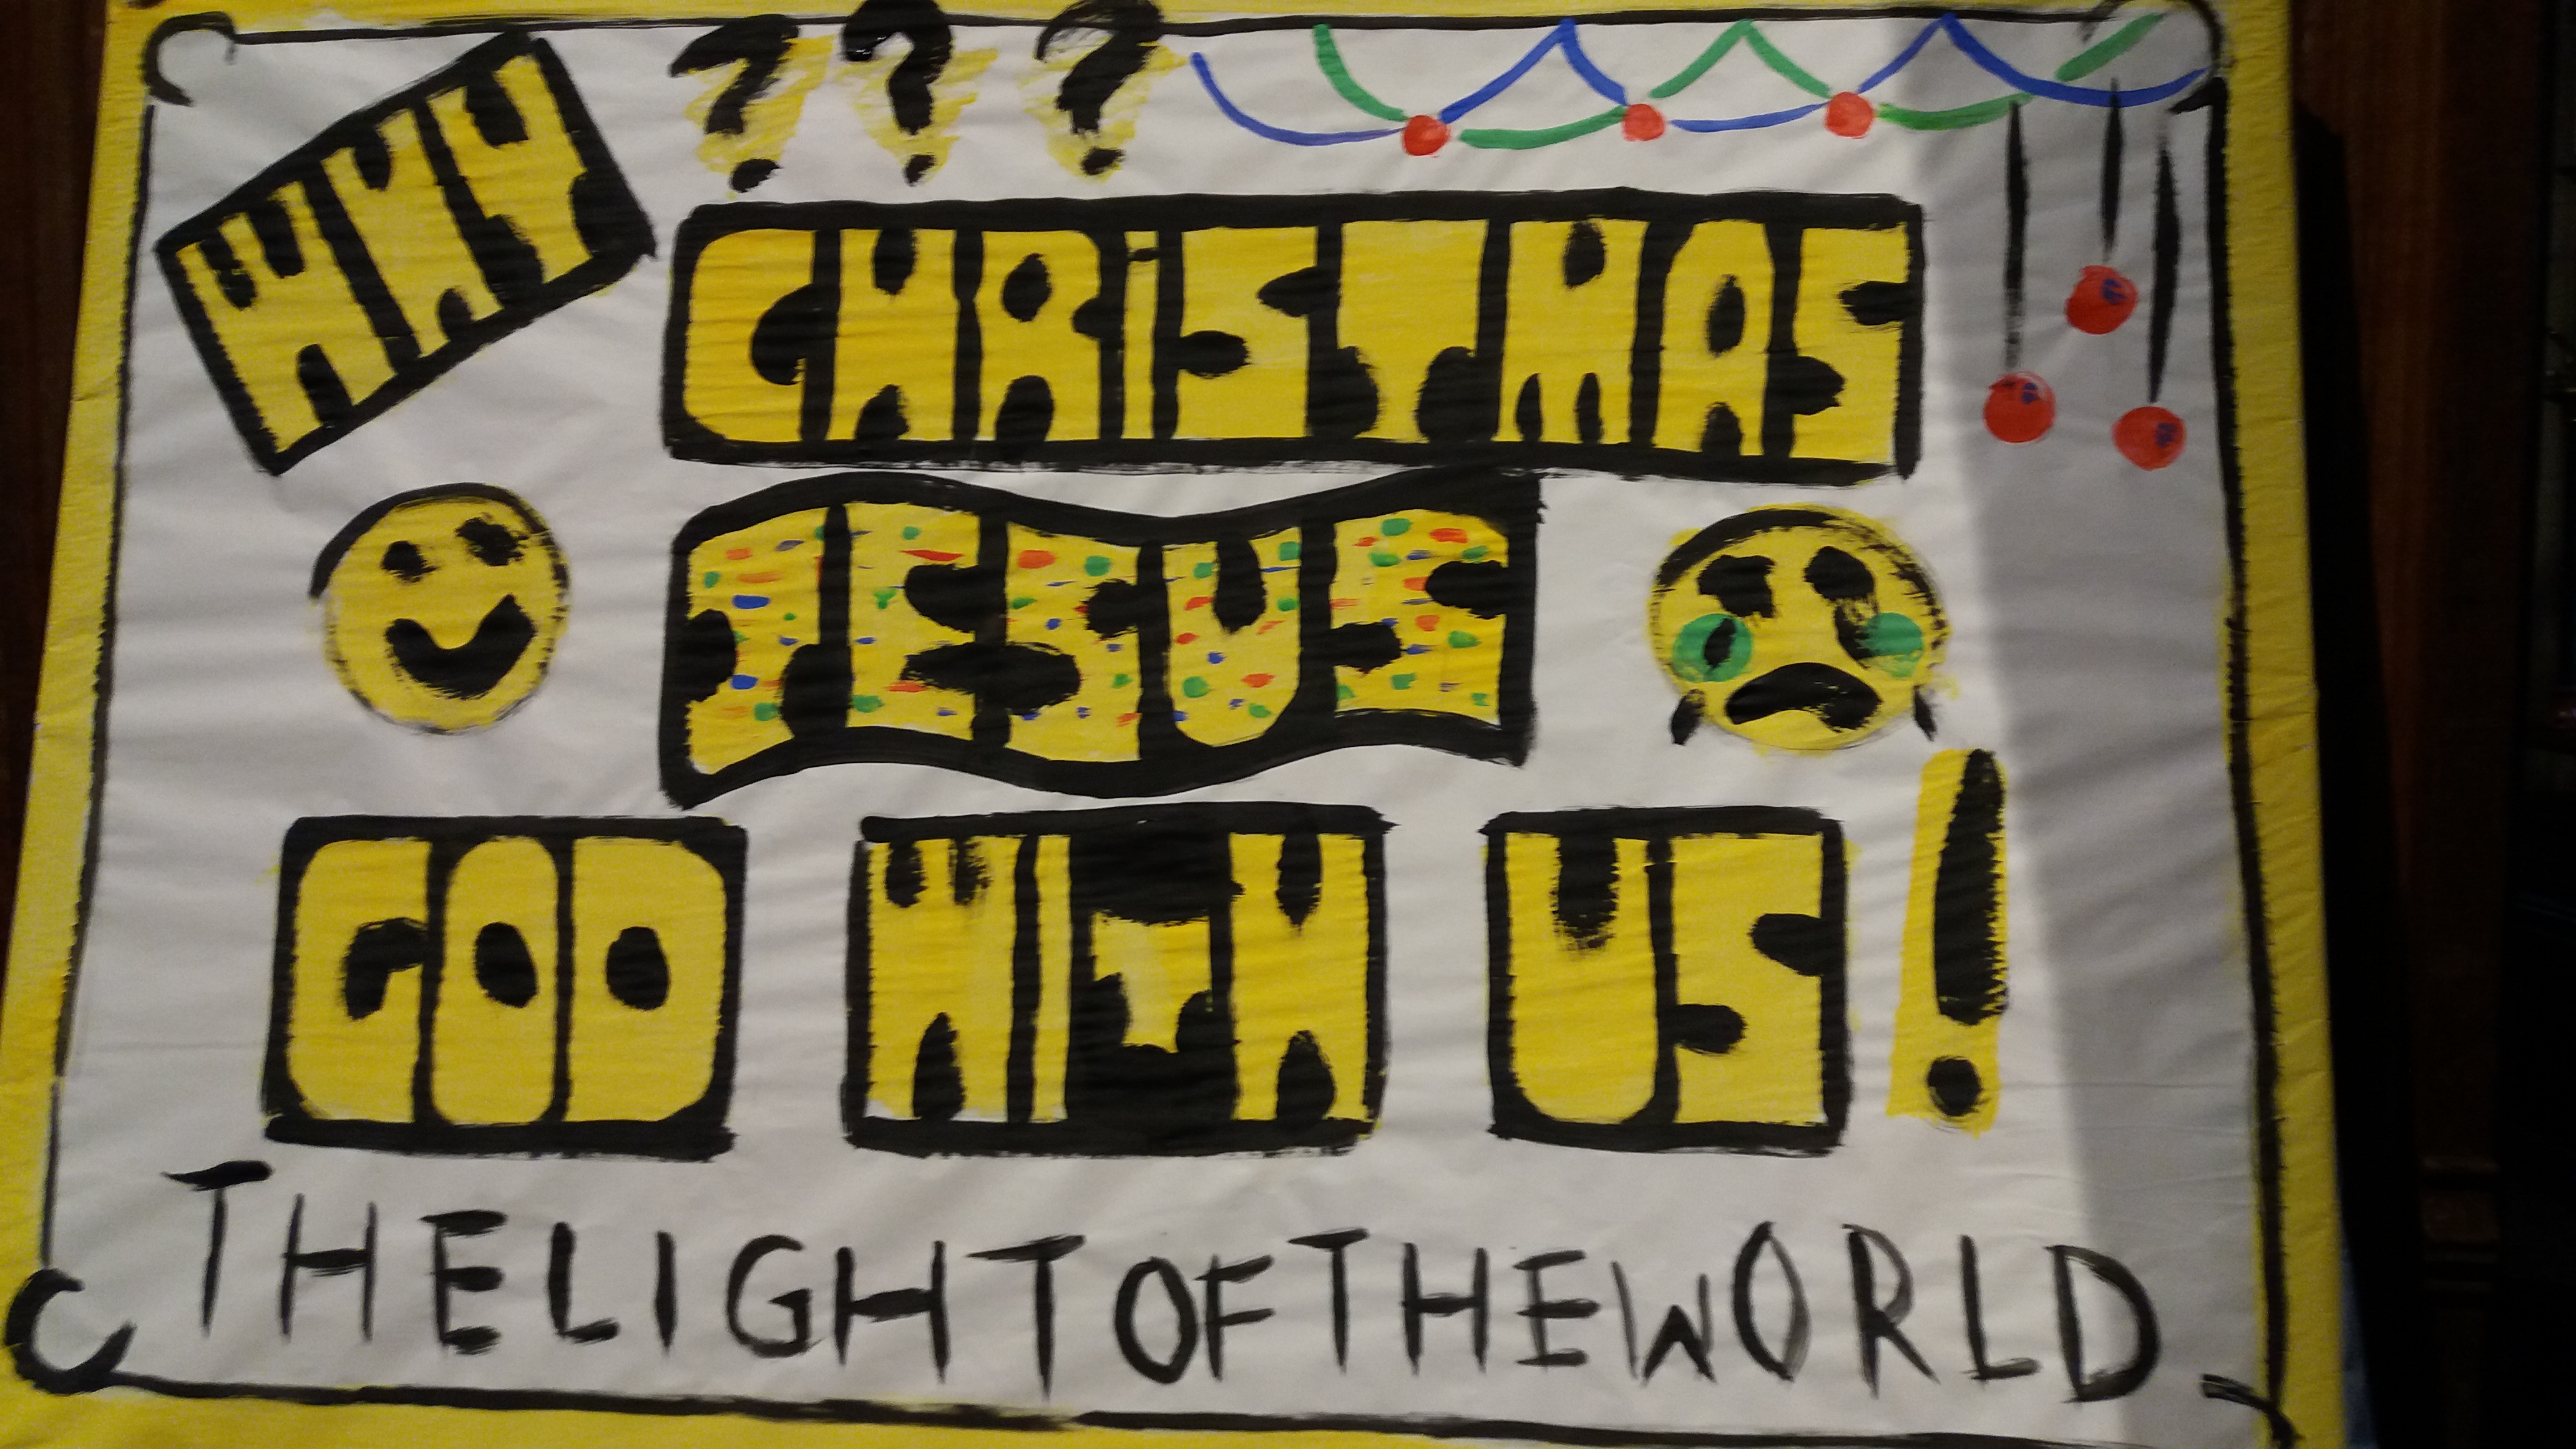 WHY ???
CHRiSTMAS
JESUS
GOD WITH US!
THE LIGHT OF THE WORLD